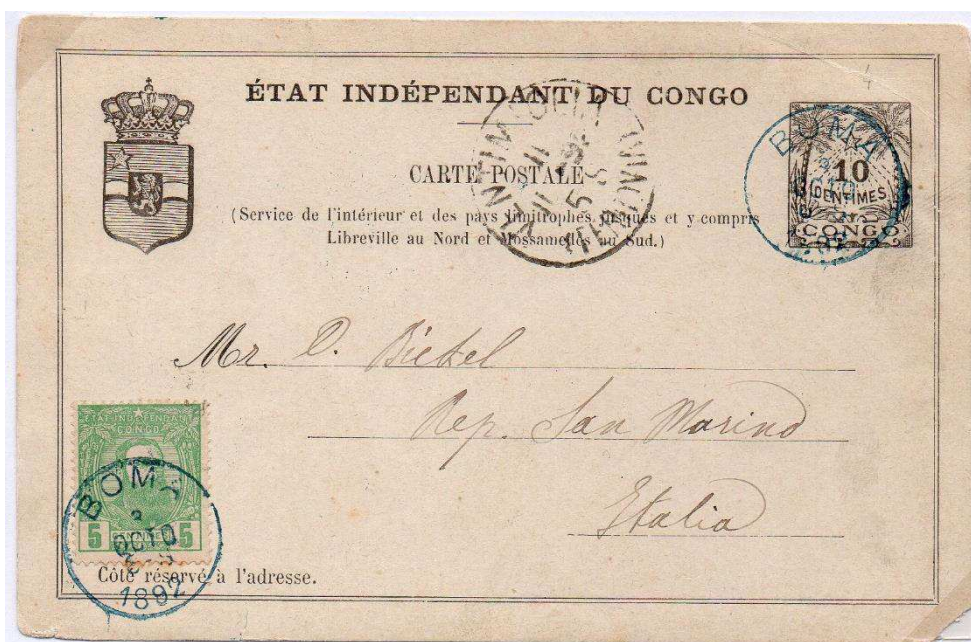 ÉTAT INDÉPENDANT DU CONGO
CARTE POSTALE
(Service de l'intérieur et des pays limitrophes jusques et y compris
Libreville au Nord et Mossamedes au Sud.)
BOMA
10
CENTIMES
CONGO
VENTIMIGLIA
Mr. D. Bickel
Rep. San Marino
Italia
ETAT INDEPENDANT
CONGO
5 5
BOMA
OCTO
1892
Côté réservé à l'adresse.